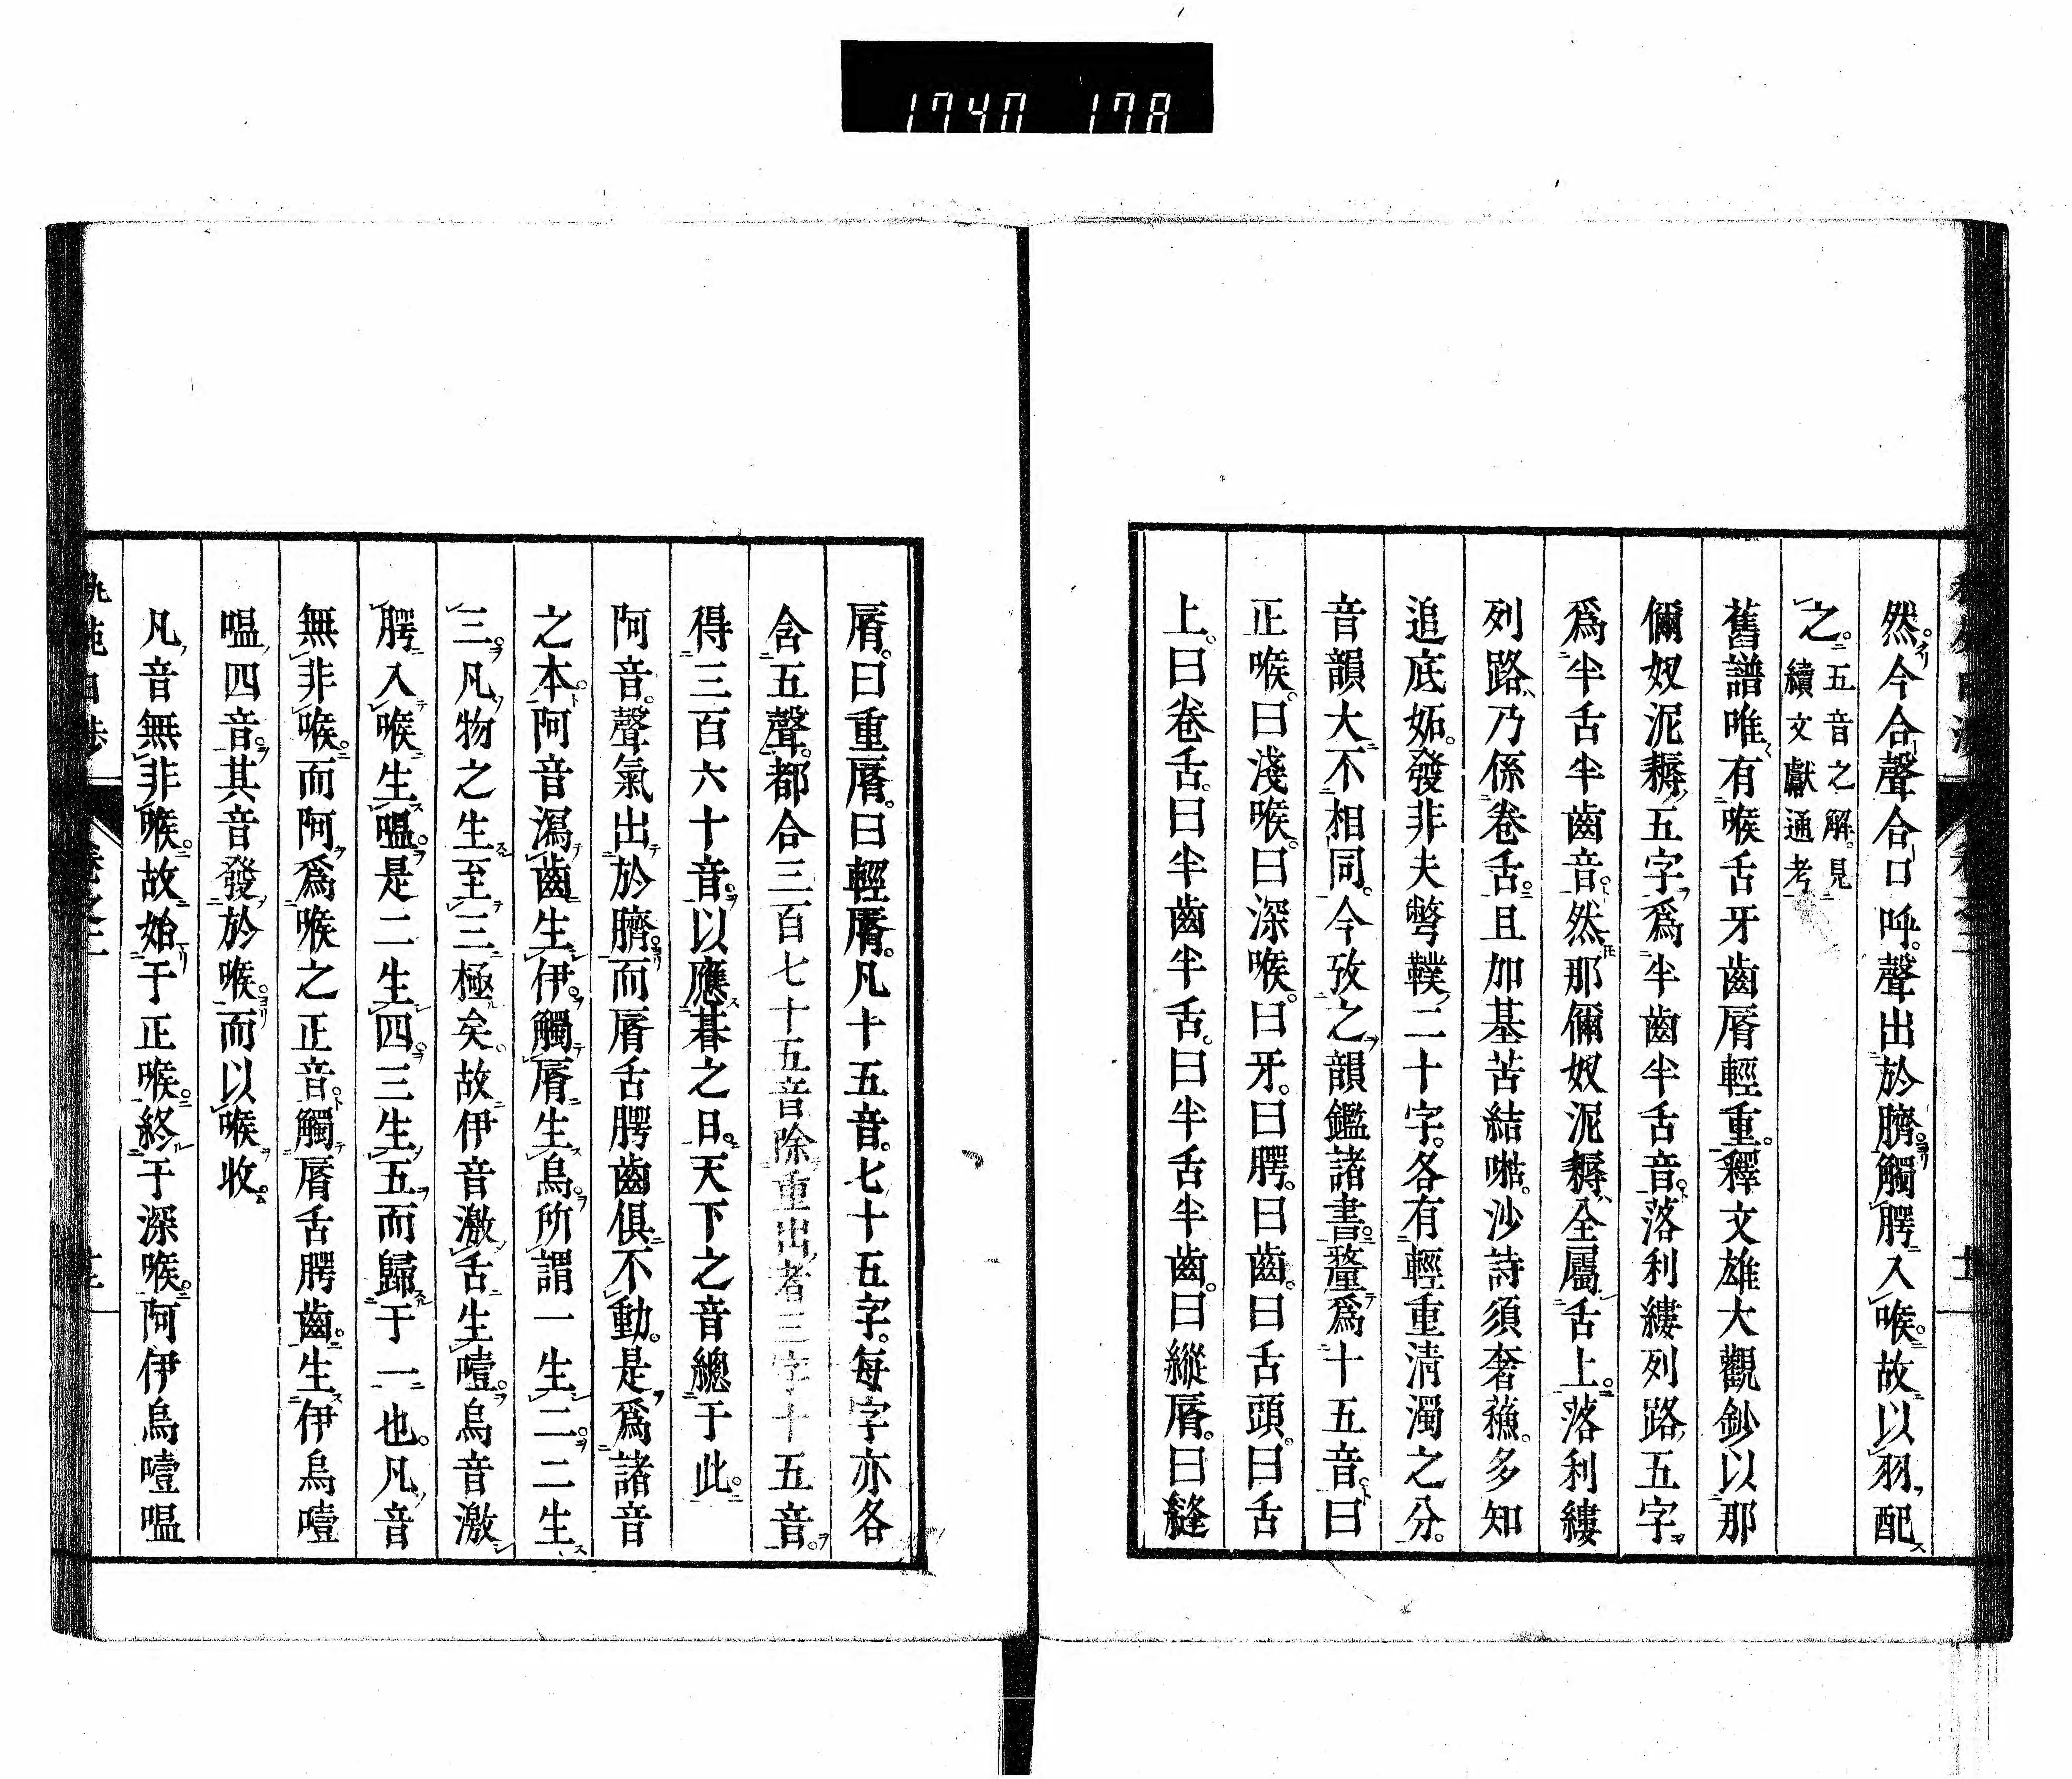 1740 178
然。今合聲合口呼。聲出於臍。觸腭入喉。故以羽配
之。五音之解。見
續文獻通考
舊譜唯有喉舌牙齒脣輕重。釋文雄大觀鈔以那
儞奴泥耨五字爲半齒半舌音。落利縷列路五字
爲半舌半齒音。然那儞奴泥耨全屬舌上。落利縷
列路乃係卷舌。且加基苦結㗖。沙詩須奢蘓。多知
追底妬。發非夫彆轐二十字。各有輕重淸濁之分。
音韻大不相同。今攷之韻鑑諸書。釐爲十五音。曰
正喉。曰淺喉。曰深喉。曰牙。曰腭。曰齒。曰舌頭。曰舌
上。曰卷舌。曰半齒半舌。曰半舌半齒。曰縱脣。曰縫
脣。曰重脣。曰輕脣。凡十五音。七十五字。每字亦各
含五聲。都合三百七十五音除重出者三字十五音。
得三百六十音。以應朞之日。天下之音總于此。
阿音。聲氣出於臍。而脣舌腭齒俱不動。是爲諸音
之本。阿音瀉齒生伊。觸脣生烏。所謂一生二。二生
三。凡物之生至三極矣。故伊音激舌生噎。烏音激
腭入喉生嗢。是二生四。三生五。而歸于一也。凡音
無非喉。而阿爲喉之正音。觸脣舌腭齒。生伊烏噎
嗢四音。其音發於喉。而以喉收。
凡音無非喉。故始于正喉。終于深喉。阿伊烏噎嗢